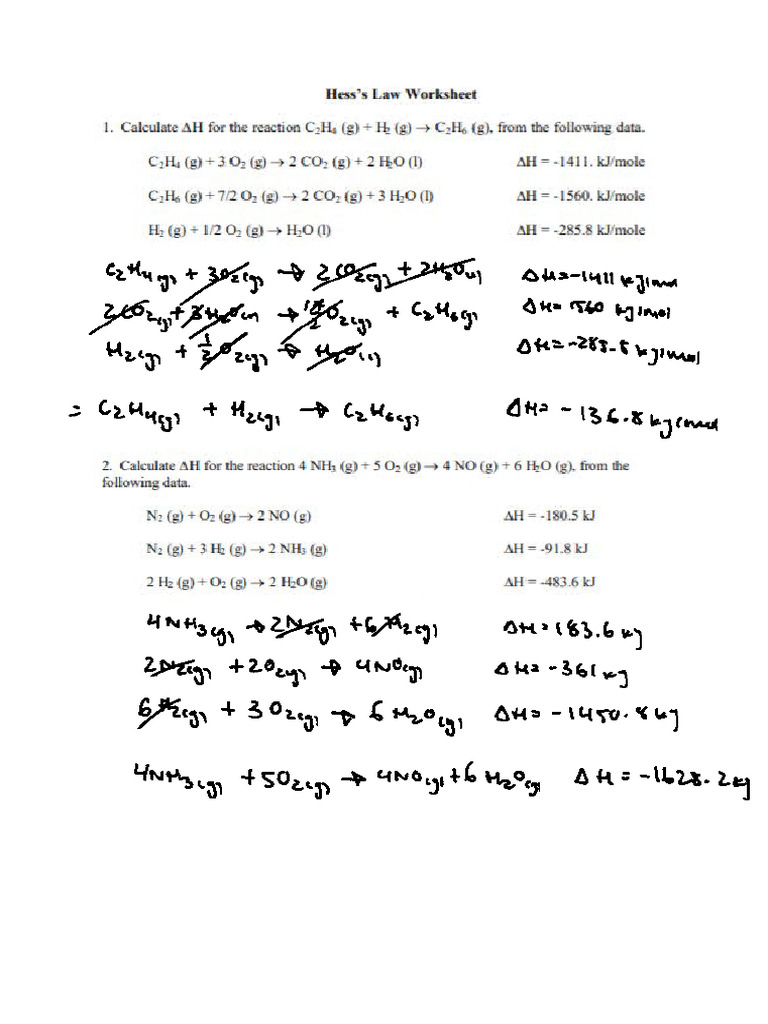 Hess's Law Worksheet
1. Calculate ΔH for the reaction C₂H₄ (g) + H₂ (g) → C₂H₆ (g), from the following data.
C₂H₄ (g) + 3 O₂ (g) → 2 CO₂ (g) + 2 H₂O (l) ΔH = -1411. kJ/mole
C₂H₆ (g) + 7/2 O₂ (g) → 2 CO₂ (g) + 3 H₂O (l) ΔH = -1560. kJ/mole
H₂ (g) + 1/2 O₂ (g) → H₂O (l) ΔH = -285.8 kJ/mole
C₂H₄(g) + 3O₂(g) → 2CO₂(g) + 2H₂O(l) ΔH=-1411 kJ/mol
2CO₂(g) + 3H₂O(l) → /2 O₂(g) + C₂H₆(g) ΔH= 1560 kJ/mol
H₂(g) + 1/2 O₂(g) → H₂O(l) ΔH=-285.8 kJ/mol
= C₂H₄(g) + H₂(g) → C₂H₆(g) ΔH= -136.8 kJ/mol
2. Calculate ΔH for the reaction 4 NH₃ (g) + 5 O₂ (g) → 4 NO (g) + 6 H₂O (g), from the
following data.
N₂ (g) + O₂ (g) → 2 NO (g) ΔH = -180.5 kJ
N₂ (g) + 3 H₂ (g) → 2 NH₃ (g) ΔH = -91.8 kJ
2 H₂ (g) + O₂ (g) → 2 H₂O (g) ΔH = -483.6 kJ
4NH₃(g) → 2N₂(g) + 6H₂(g) ΔH=183.6 kJ
2N₂(g) + 2O₂(g) → 4NO(g) ΔH= -361 kJ
6H₂(g) + 3O₂(g) → 6H₂O(g) ΔH= -1450.8 kJ
4NH₃(g) + 5O₂(g) → 4NO(g) + 6H₂O(g) ΔH = -1628.2 kJ